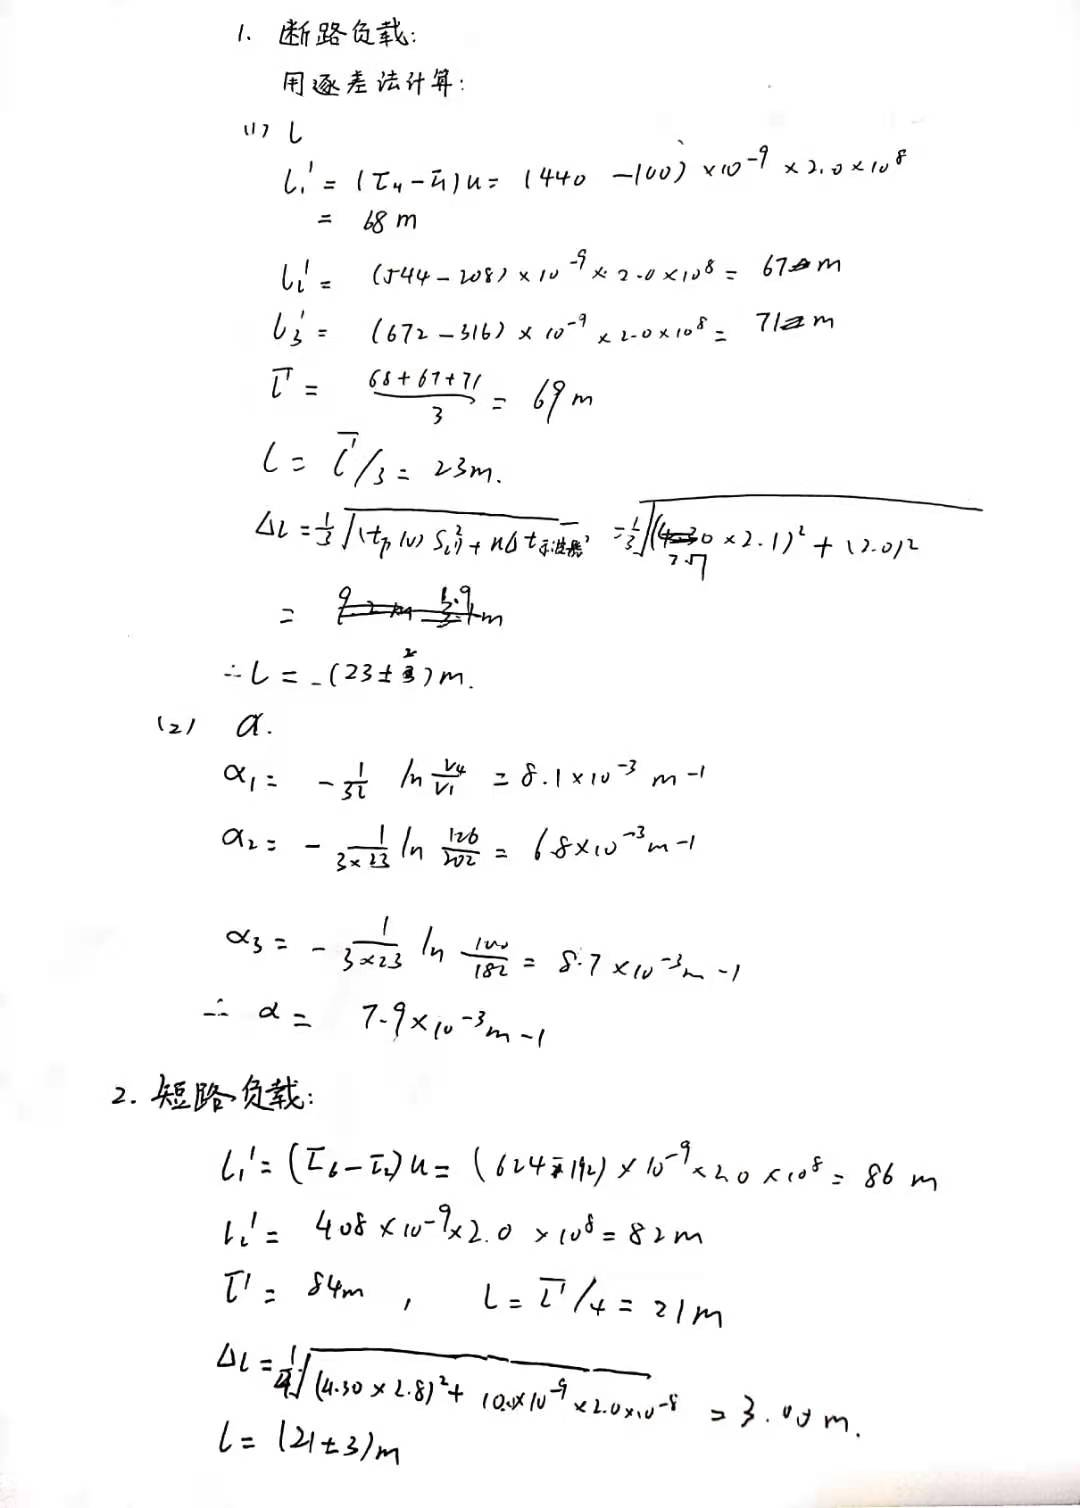 1. 断路负载:
用逐差法计算:
(1) l
l₁' = (τ̄₄ - τ̄₁)u = (440 - 100) × 10⁻⁹ × 2.0 × 10⁸
= 68 m
l₂' = (544 - 208) × 10⁻⁹ × 2.0 × 10⁸ = 67 m
l₃' = (672 - 316) × 10⁻⁹ × 2.0 × 10⁸ = 71 m
l̄' = (68 + 67 + 71)/3 = 69 m
l = l̄'/3 = 23 m.
Δl = 1/3 √((tp(ν) S)² + uΔt示波器)² = 1/3 √((2.17 × 2.1)² + (2.0)²
= 1.9 m
∴ l = (23 ± 2) m.
(2) α.
α₁ = - 1/3l ln V₄/V₁ = 8.1 × 10⁻³ m-1
α₂ = - 1/(3×23) ln 126/202 = 6.8 × 10⁻³ m-1
α₃ = - 1/(3×23) ln 100/182 = 8.7 × 10⁻³ m-1
∴ α = 7.9 × 10⁻³ m-1
2. 短路负载:
l₁' = (τ̄₆ - τ̄₂)u = (624 - 192) × 10⁻⁹ × 2.0 × 10⁸ = 86 m
l₂' = 408 × 10⁻⁹ × 2.0 × 10⁸ = 82 m
l̄' = 84 m , l = l̄'/4 = 21 m
Δl = 1/4 √((4.30 × 2.8)² + 10.0 × 10⁻⁹ × 2.0 × 10⁻⁸ = 3.00 m.
l = (21 ± 3) m